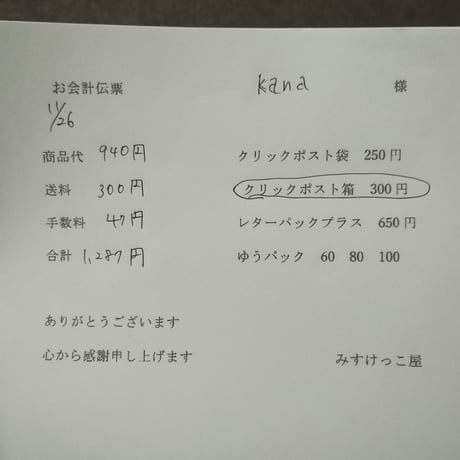 お会計伝票 kana 様
11/26
商品代 940円 クリックポスト袋 250円
送料 300円 クリックポスト箱 300円
手数料 47円 レターパックプラス 650円
合計 1,287円 ゆうパック 60 80 100
ありがとうございます
心から感謝申し上げます みすけっこ屋